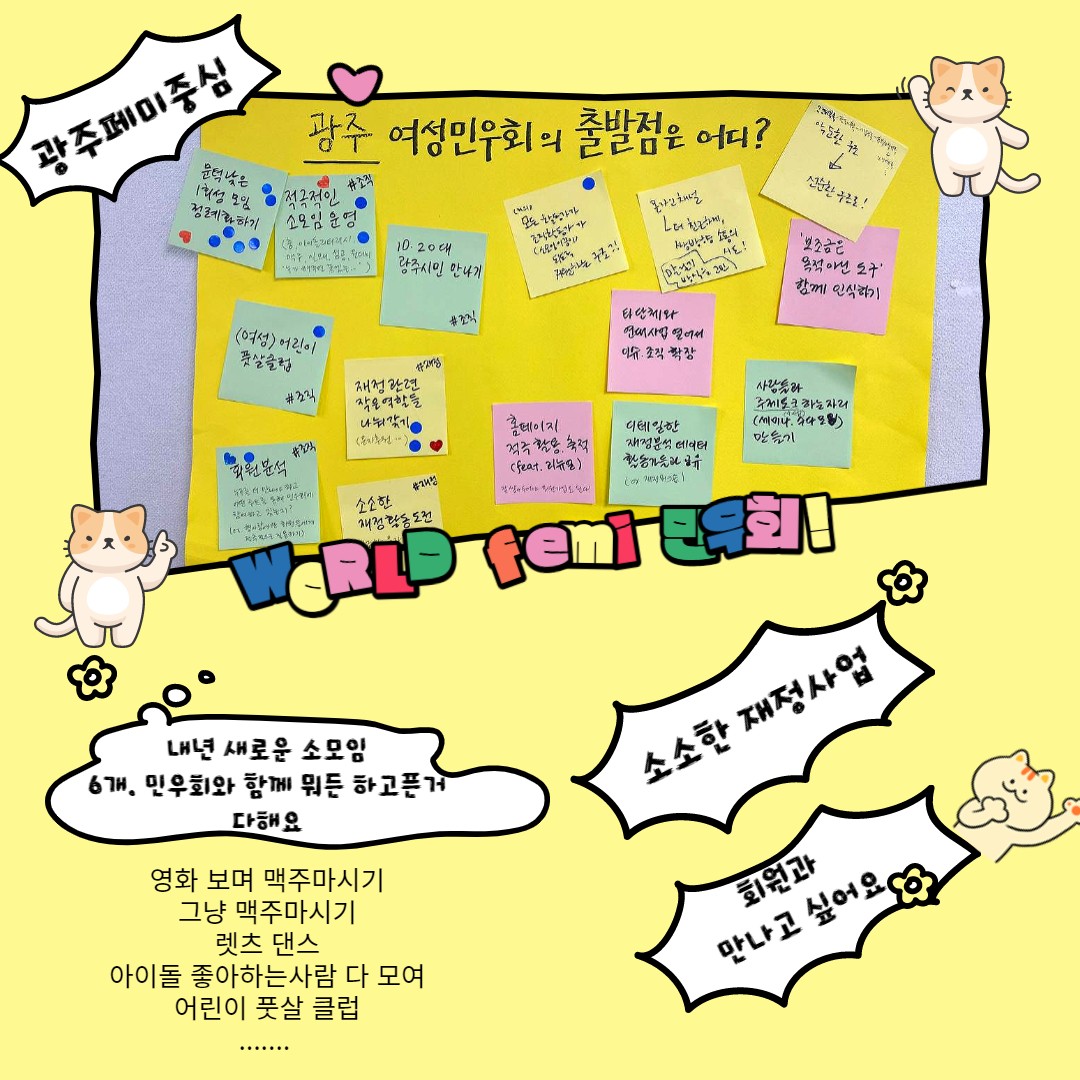 광주페미중심
광주 여성민우회의 출발점은 어디?
문턱낮은
1회성 모임
정례화하기
적극적인
#조직
소모임 운영
10.20대
광주시민 만나기
#조직
모든 활동가가
조직활동가가
악순환 구조
선순환 구조로!
'보조금은
목적 아닌 도구'
함께 인식하기
(여성) 어린이
풋살클럽
#조직
#재정
재정관련
작은역할들
나눠갖기
타단체와
연대사업 열어서
이슈.조직 확장
사람들과
주제토크 하는자리
만들기
홈페이지
적극 활용. 축적
(feat. 리뉴얼)
디테일한
재정분석 데이터
활동가들과 공유
#조직
회원분석
#재정
소소한
재정활동 도전
WORLD femi 민우회!
소소한 재정사업
내년 새로운 소모임
6개. 민우회와 함께 뭐든 하고픈거
다해요
회원과
만나고 싶어요
영화 보며 맥주마시기
그냥 맥주마시기
렛츠 댄스
아이돌 좋아하는사람 다 모여
어린이 풋살 클럽
.......